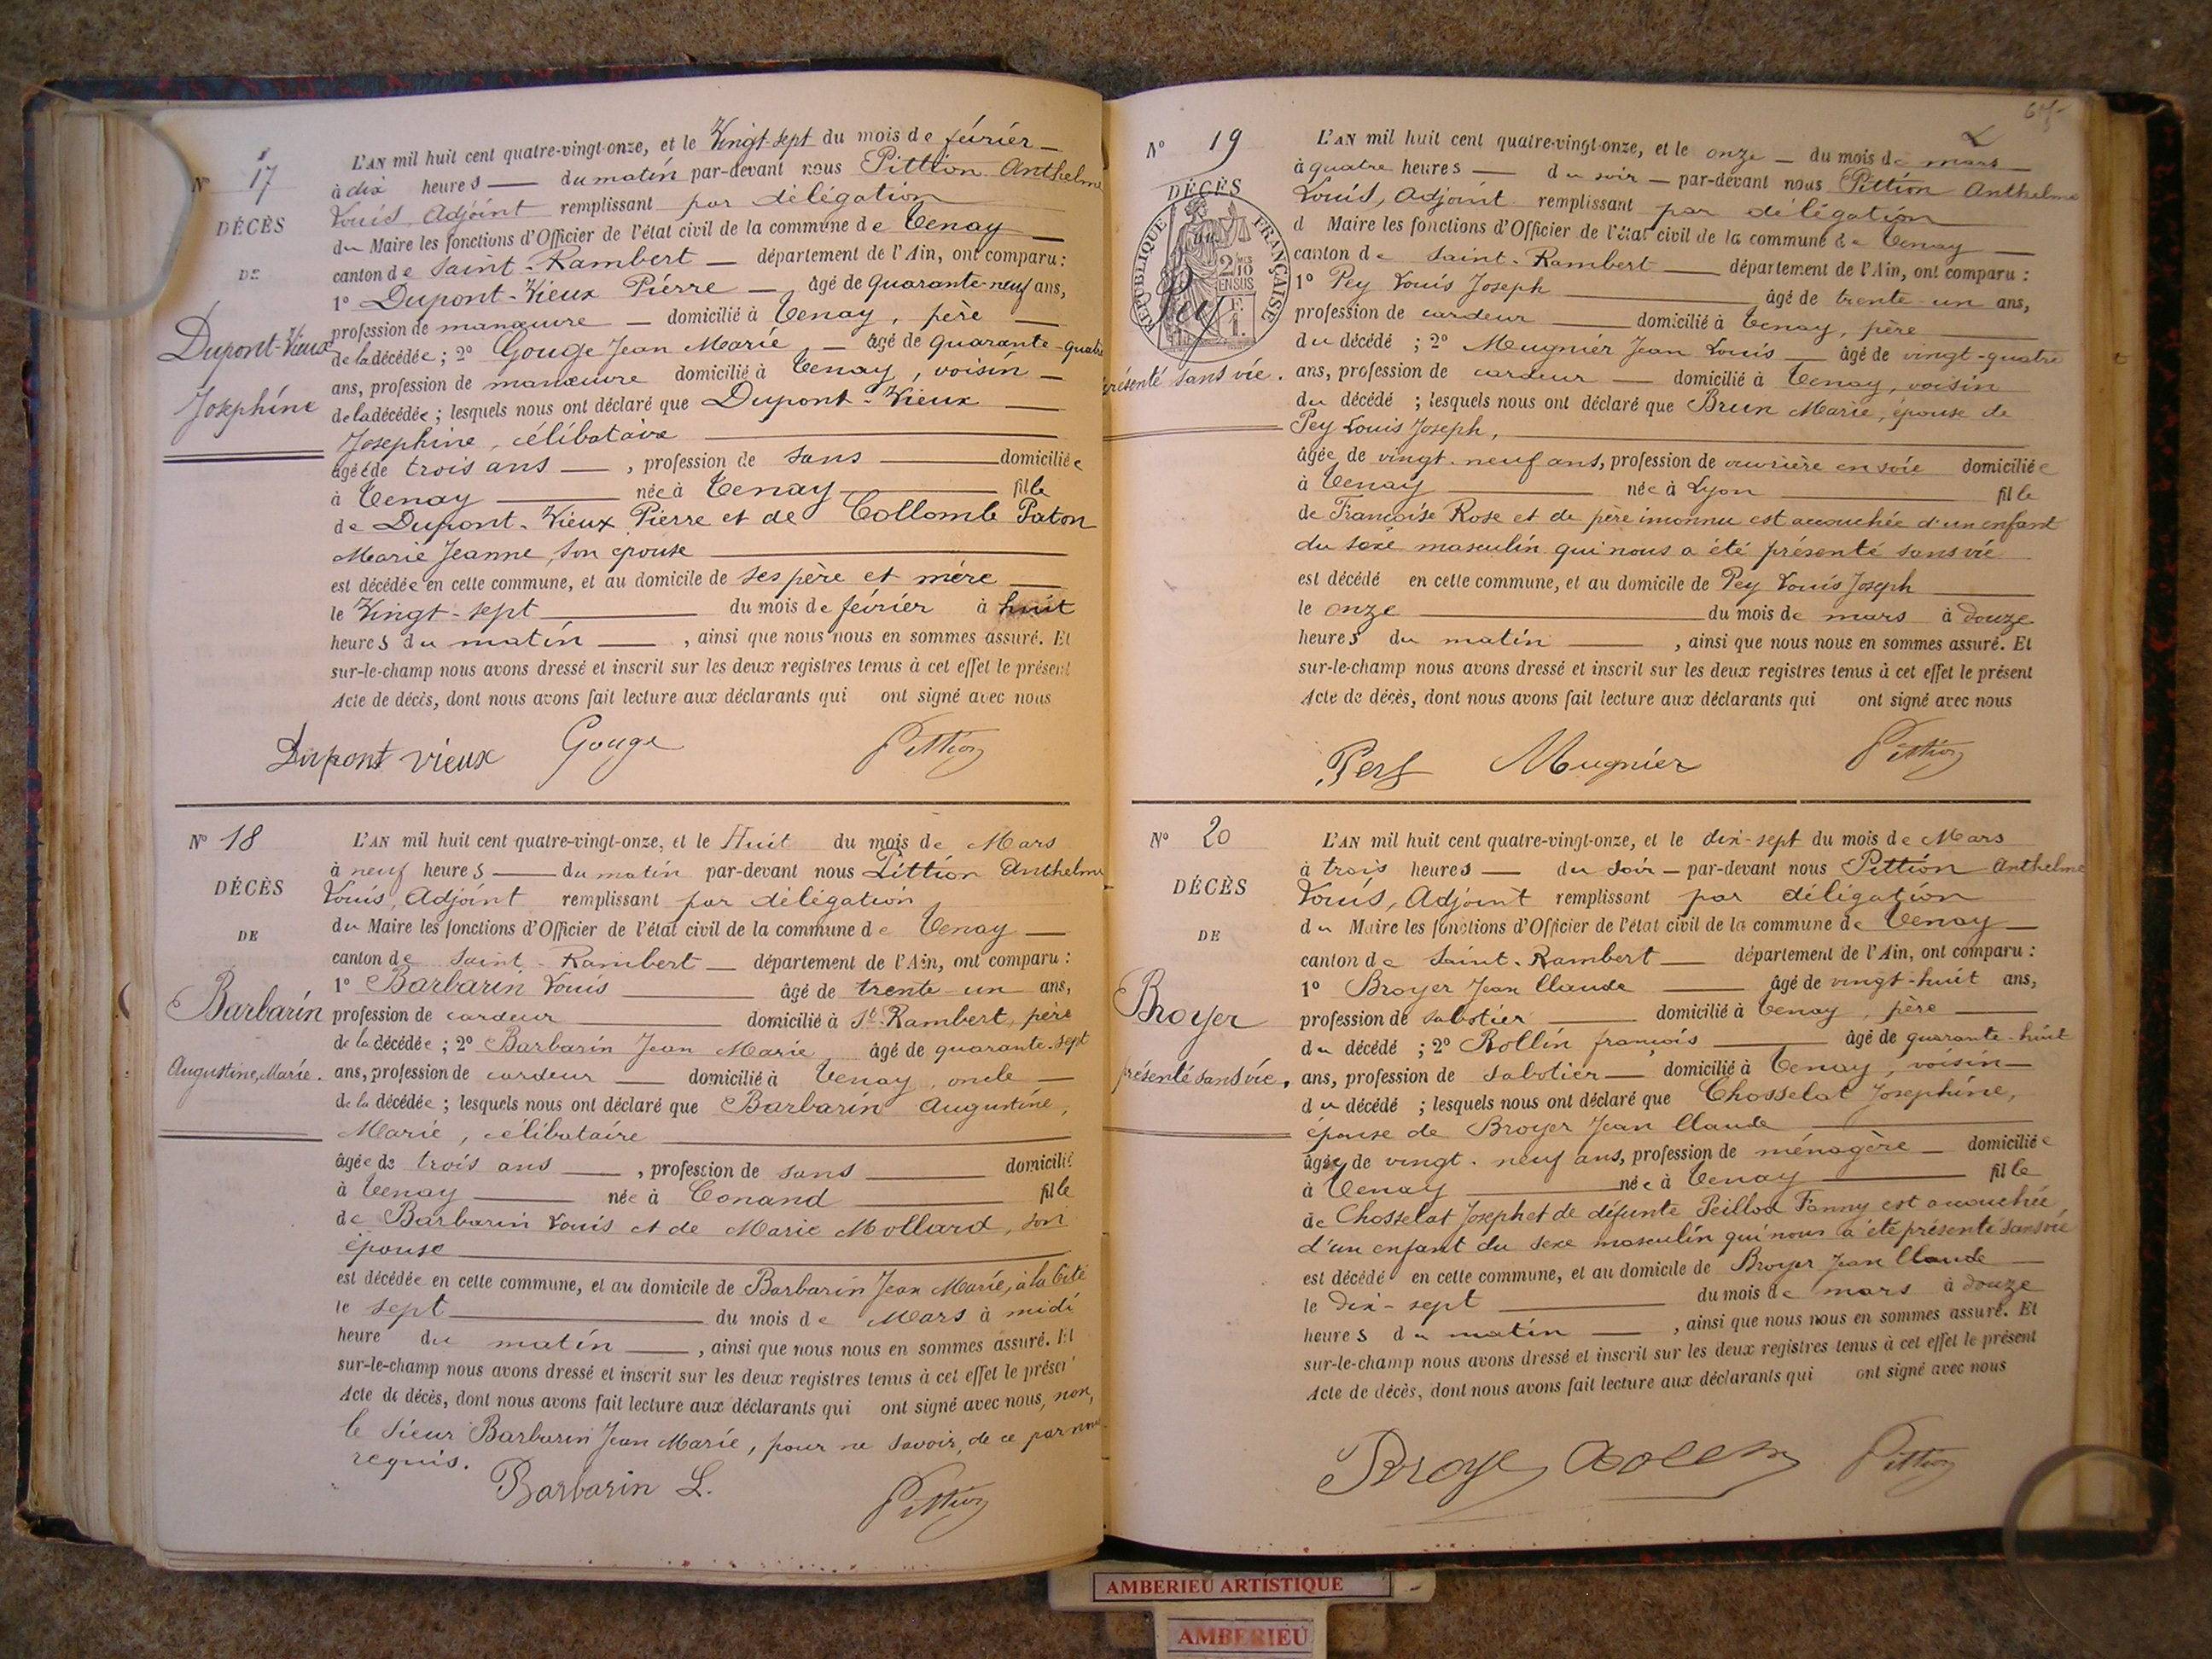 Nº 17
DÉCÈS
DE
Dupont-Vieux
Joséphine
L'AN mil huit cent quatre-vingt-onze, et le Vingt-sept du mois de février
à dix heures du matin par-devant nous Pittion Anthelme
Louis, Adjoint remplissant par délégation
du Maire les fonctions d'Officier de l'état civil de la commune de Tenay
canton de Saint-Rambert département de l'Ain, ont comparu :
1º Dupont-Vieux Pierre âgé de quarante-neuf ans,
profession de manœuvre domicilié à Tenay, père
de la décédée ; 2º Gouge Jean Marie âgé de quarante-quatre
ans, profession de manœuvre domicilié à Tenay, voisin
de la décédée ; lesquels nous ont déclaré que Dupont-Vieux
Joséphine, célibataire
âgée de trois ans, profession de sans domiciliée
à Tenay née à Tenay fille
de Dupont-Vieux Pierre et de Collomb Paton
Marie Jeanne, son épouse
est décédée en cette commune, et au domicile de ses père et mère
le Vingt-sept du mois de février à huit
heures du matin, ainsi que nous nous en sommes assuré. Et
sur-le-champ nous avons dressé et inscrit sur les deux registres tenus à cet effet le présent
Acte de décès, dont nous avons fait lecture aux déclarants qui ont signé avec nous
Dupont vieux Gouge Pittion
Nº 18
DÉCÈS
DE
Barbarin
Augustine, Marie.
L'AN mil huit cent quatre-vingt-onze, et le Huit du mois de Mars
à neuf heures du matin par-devant nous Pittion Anthelme
Louis, Adjoint remplissant par délégation
du Maire les fonctions d'Officier de l'état civil de la commune de Tenay
canton de Saint-Rambert département de l'Ain, ont comparu :
1º Barbarin Louis âgé de trente-un ans,
profession de cardeur domicilié à St-Rambert, père
de la décédée ; 2º Barbarin Jean Marie âgé de quarante-sept
ans, profession de cardeur domicilié à Tenay, oncle
de la décédée ; lesquels nous ont déclaré que Barbarin Augustine,
Marie, célibataire
âgée de trois ans, profession de sans domicilié
à Tenay née à Conand fille
de Barbarin Louis et de Marie Mollard, son
épouse
est décédée en cette commune, et au domicile de Barbarin Jean Marie, à la Cité
le sept du mois de Mars à midi
heure du matin, ainsi que nous nous en sommes assuré. Et
sur-le-champ nous avons dressé et inscrit sur les deux registres tenus à cet effet le présent
Acte de décès, dont nous avons fait lecture aux déclarants qui ont signé avec nous, non,
le sieur Barbarin Jean Marie, pour ne savoir, de ce par nous
requis.
Barbarin L. Pittion
Nº 19
DÉCÈS
RÉPUBLIQUE FRANÇAISE
2/10 EN SUS
Pey
présenté sans vie.
L'AN mil huit cent quatre-vingt-onze, et le onze du mois de mars
à quatre heures du soir par-devant nous Pittion Anthelme
Louis, Adjoint remplissant par délégation
d Maire les fonctions d'Officier de l'état civil de la commune de Tenay
canton de Saint-Rambert département de l'Ain, ont comparu :
1º Pey Louis Joseph âgé de trente-un ans,
profession de cardeur domicilié à Tenay, père
du décédé ; 2º Mugnier Jean Louis âgé de vingt-quatre
ans, profession de cardeur domicilié à Tenay, voisin
du décédé ; lesquels nous ont déclaré que Brun Marie, épouse de
Pey Louis Joseph,
âgée de vingt-neuf ans, profession de ouvrière en soie domiciliée
à Tenay née à Lyon fille
de Françoise Rose et de père inconnu est accouchée d'un enfant
du sexe masculin qui nous a été présenté sans vie
est décédé en cette commune, et au domicile de Pey Louis Joseph
le onze du mois de mars à douze
heures du matin, ainsi que nous nous en sommes assuré. Et
sur-le-champ nous avons dressé et inscrit sur les deux registres tenus à cet effet le présent
Acte de décès, dont nous avons fait lecture aux déclarants qui ont signé avec nous
Mugnier Pittion
Nº 20
DÉCÈS
DE
Broyer
présenté sans vie,
L'AN mil huit cent quatre-vingt-onze, et le dix-sept du mois de Mars
à trois heures du soir par-devant nous Pittion Anthelme
Louis, Adjoint remplissant par délégation
du Maire les fonctions d'Officier de l'état civil de la commune de Tenay
canton de Saint-Rambert département de l'Ain, ont comparu :
1º Broyer Jean Claude âgé de vingt-huit ans,
profession de sabotier domicilié à Tenay, père
du décédé ; 2º Rollin françois âgé de quarante-huit
ans, profession de sabotier domicilié à Tenay, voisin
du décédé ; lesquels nous ont déclaré que Chosselat Joséphine,
épouse de Broyer Jean Claude
âgée de vingt-neuf ans, profession de ménagère domiciliée
à Tenay née à Tenay fille
de Chosselat Joseph et de défunte Peillod Fanny est accouchée
d'un enfant du sexe masculin qui nous a été présenté sans vie
est décédé en cette commune, et au domicile de Broyer Jean Claude
le Dix-sept du mois de mars à douze
heures du matin, ainsi que nous nous en sommes assuré. Et
sur-le-champ nous avons dressé et inscrit sur les deux registres tenus à cet effet le présent
Acte de décès, dont nous avons fait lecture aux déclarants qui ont signé avec nous
Pittion
AMBERIEU ARTISTIQUE
AMBERIEU